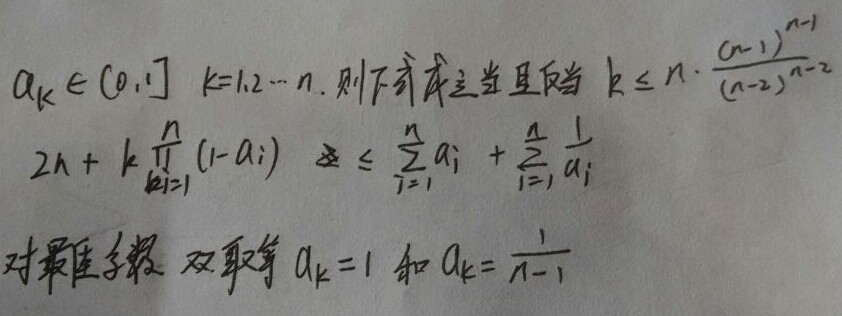 a_k ∈ (0,1] k=1,2…n. 则下式成立当且仅当 k ≤ n · \frac{(n-1)^{n-1}}{(n-2)^{n-2}}
2n + k \prod_{i=1}^{n} (1-a_i) ≤ \sum_{i=1}^{n} a_i + \sum_{i=1}^{n} \frac{1}{a_i}
对最佳系数 双取等 a_k = 1 和 a_k = \frac{1}{n-1}